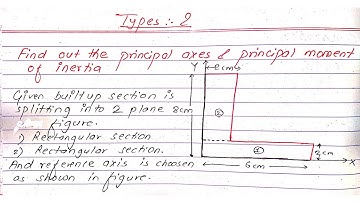 Types :- 2
Find out the principal axes & principal moment
of inertia
Given builtup section is
splitting into 2 plane
figure.
1) Rectangular section
2) Rectangular section.
And reference axis is choosen
as shown in figure.
Y
2cm
8cm
②
①
2cm
X
6cm